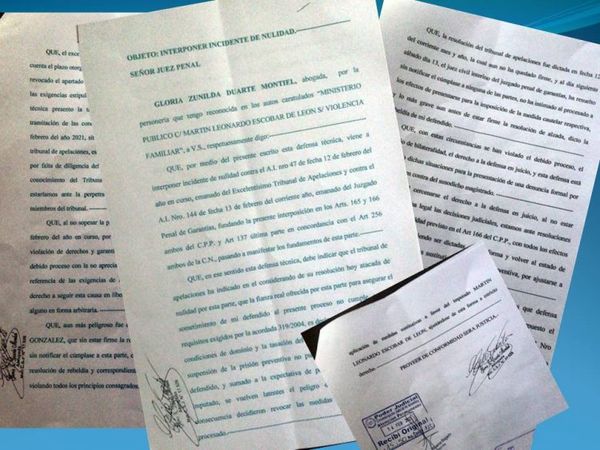 QUE, el exce
cuenta el plazo otorg
revocado el apartado
las exigencias estipul
técnica presento la s
tramitación de las con
febrero del año 2021, sit
tribunal de apelaciones, es
por falta de diligencia del
conocimiento del Tribuna
estaríamos ante la perpetra
miembros del tribunal.
QUE, al no sopesar la p
febrero del año en curso, por
violación de derechos y garant
debido proceso con la no apreció
referencia de las exigencias de
derecho a seguir esta causa en liber
alguno en forma arbitraria.
QUE, aun más peligroso fue
GONZALEZ, que sin estar firme la re
sin notificar el cúmplase a esta parte, e
resolución de rebeldía y correspondient
violando todos los principios consagrados.
OBJETO: INTERPONER INCIDENTE DE NULIDAD.
SEÑOR JUEZ PENAL
GLORIA ZUNILDA DUARTE MONTIEL, abogada, por la
personería que tengo reconocida en los autos caratulados "MINISTERIO
PUBLICO C/ MARTIN LEONARDO ESCOBAR DE LEON S/ VIOLENCIA
FAMILIAR", a V.S., respetuosamente digo:
QUE, por medio del presente escrito esta defensa técnica, viene a
interponer incidente de nulidad contra el A.I. nro 47 de fecha 12 de febrero del
año en curso, emanado del Excelentísimo Tribunal de Apelaciones y contra el
A.I. Nro. 144 de fecha 13 de febrero del corriente año, emanado del Juzgado
Penal de Garantías, fundando la presente interposición en los Arts. 165 y 166
ambos del C.P.P. y Art 137 última parte en concordancia con el Art 256
ambos de la C.N., pasando a manifestar los fundamentos de esta parte.
QUE, en ese sentido esta defensa técnica, debe indicar que el tribunal de
apelaciones ha indicado en el considerando de su resolución hoy atacada de
nulidad por esta parte, que la fianza real ofrecida por esta parte para asegurar el
sometimiento de mi defendido al presente proceso no cumple
requisitos exigidos por la acordada 319/2004, en disti
condiciones de dominio y la tasación de
suspensión de la prisión preventiva no pu
defendido, y sumado a la expectativa de p
imputado, se vuelven latentes el peligro
consecuencia decidieron revocar las medidas
procesado.
QUE, la resolución del tribunal de apelaciones fue dictada en fecha 12
del corriente mes y año, la cual aun no ha quedado firme, y al día siguiente
sábado día 13, el juez civil interino del juzgado penal de garantías, sin resuelto
sin notificar el cúmplase a ninguna de las partes, no ha intimado al procesado a
los efectos de presentarse para la imposición de la medida cautelar respectiva,
y lo más grave aun antes de estar firme la resolución de alzada, dicto la
de mi defendido.
QUE, con estas circunstancias se han violado el debido proceso, el
de bilateralidad, el derecho a la defensa en juicio, y esta defensa está
dichas situaciones para la presentación de una denuncia formal por
en contra del susodicho magistrado.
cercenarse el derecho a la defensa en juicio, al no estar
legal las decisiones judiciales, estamos ante resoluciones
previsto en el Art 166 del C.P.P., con todos los efectos
forma y volver al estado de
ventiva, por ajustarse a
que defensa
aplicación de medidas sustitutivas a favor del imputado MARTIN
LEONARDO ESCOBAR DE LEON, ajustándose de esta forma a estricto
derecho.
PROVEER DE CONFORMIDAD SERA JUSTICIA.
Poder Judicial
FEB
Recibí Original